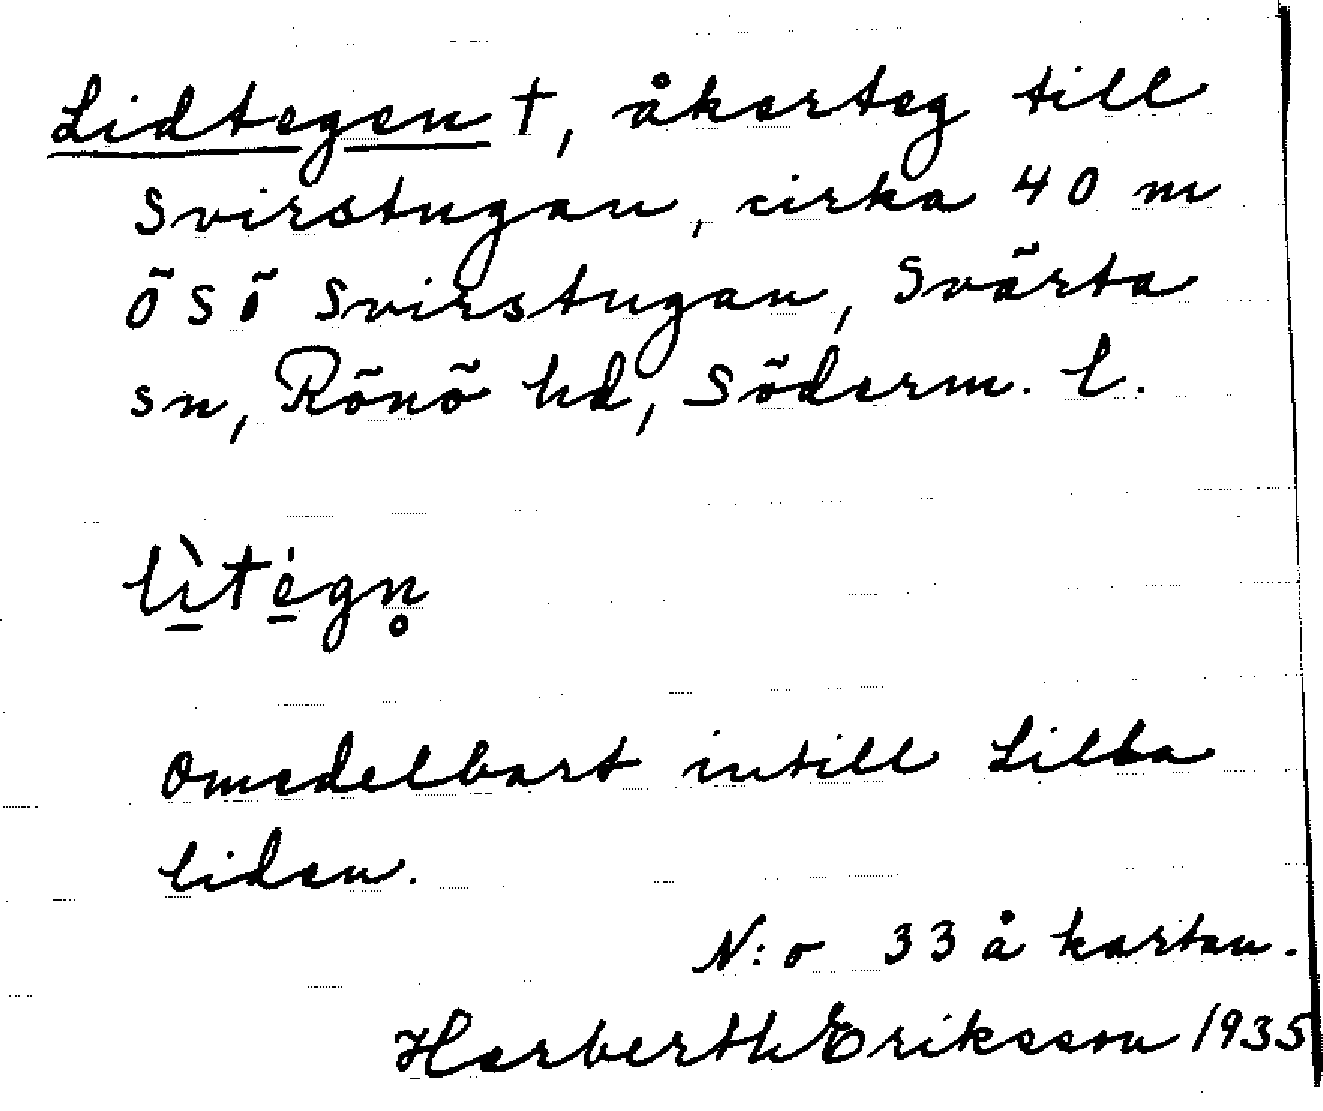 Lidtegen †, åkerteg till
Svirstugan, cirka 40 m
ÖSÖ Svirstugan, Svärta
sn, Rönö hd, Söderm. l.
lìtėgn̥
Omedelbart intill Lilla
liden.
N:o 33 å kartan.
Herberth Eriksson 1935